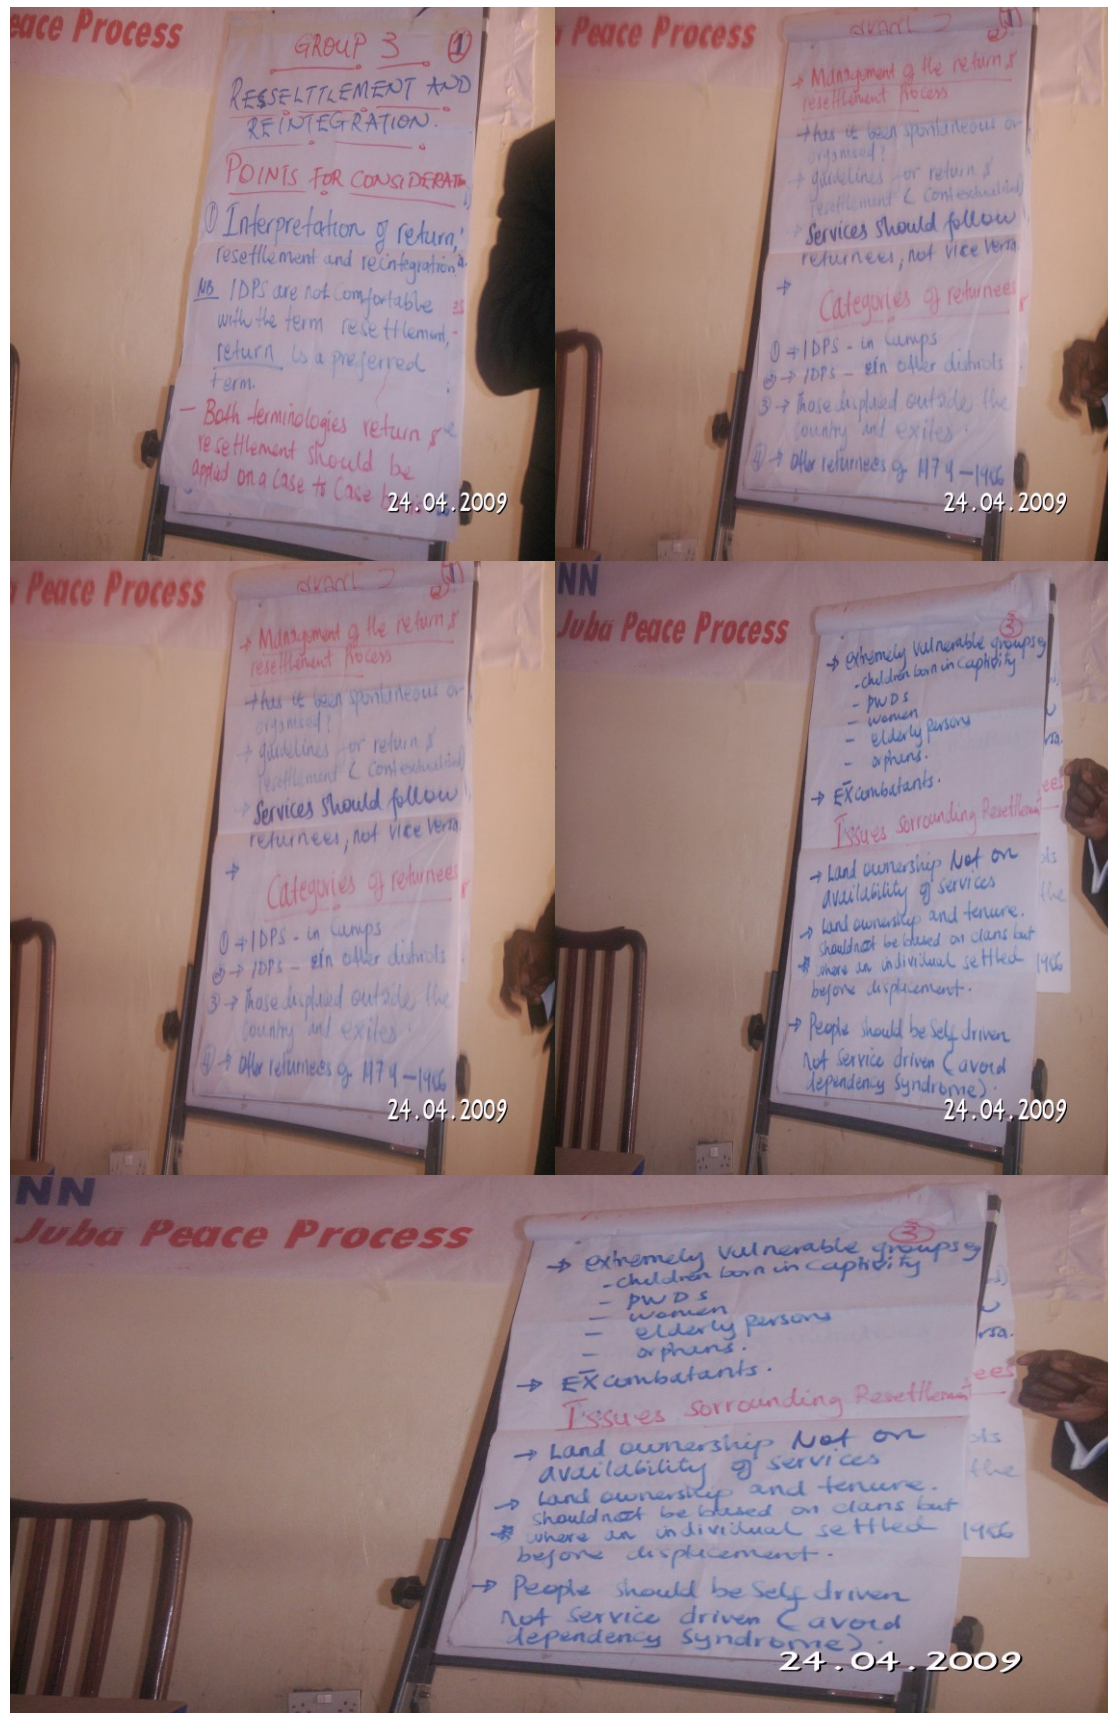 eace Process
GROUP 3 1
RESSELTTLEMENT AND
REINTEGRATION.
POINTS FOR CONSIDERAT
① Interpretation of return,
resettlement and recintegration
NB IDPS are not comfortable
with the term resettlement,
return is a preferred
term.
- Both terminologies return &
resettlement should be
applied on a case to case
24.04.2009
a Peace Process
→ Management of the return &
resettlement Process
→ has it been spontaneous or
organised?
→ guidelines for return &
resettlement (Contextualized)
→ Services should follow
returnees, not vice versa.
→
Categories of returnees
① → IDPS - in Camps
② → IDPS - in other districts
③ → Those displaced outside the
country and exiles.
④ → Other returnees of
24.04.2009
a Peace Process
→ Management of the return &
resettlement Process
→ has it been spontaneous or
organised?
→ guidelines for return &
resettlement (Contextualized)
→ Services should follow
returnees, not vice versa.
→
Categories of returnees
① → IDPS - in Camps
② → IDPS - in other districts
③ → Those displaced outside the
country and exiles.
④ → Other returnees of
24.04.2009
NN
Juba Peace Process
3
→ extremely vulnerable groups eg
- children born in captivity
- PWDs
- women
- elderly persons
- orphans.
→ EX combatants.
Issues sorrounding Resettlement
→ Land ownership Not on
availability of services
→ Land ownership and tenure.
should not be based on clans but
where an individual settled
before displacement.
→ People should be self driven
Not service driven (avoid
dependency syndrome).
24.04.2009
NN
Juba Peace Process
3
→ extremely vulnerable groups eg
- children born in captivity
- PWDs
- women
- elderly persons
- orphans.
→ EX combatants.
Issues sorrounding Resettlement
→ Land ownership Not on
availability of services
→ Land ownership and tenure.
should not be based on clans but
where an individual settled
before displacement.
→ People should be self driven
Not service driven (avoid
dependency syndrome).
24.04.2009